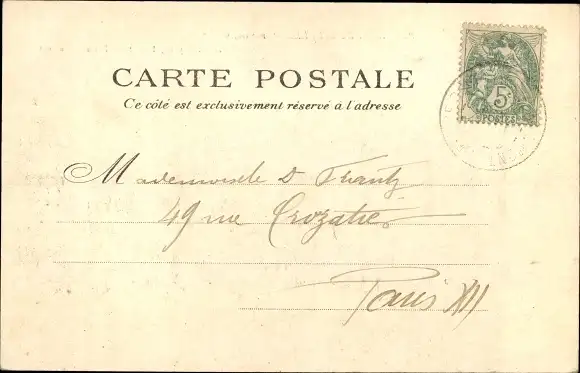 CARTE POSTALE
Ce côté est exclusivement réservé à l'adresse
5c
POSTES
Mademoiselle D
49 rue Crozatier
Paris XII